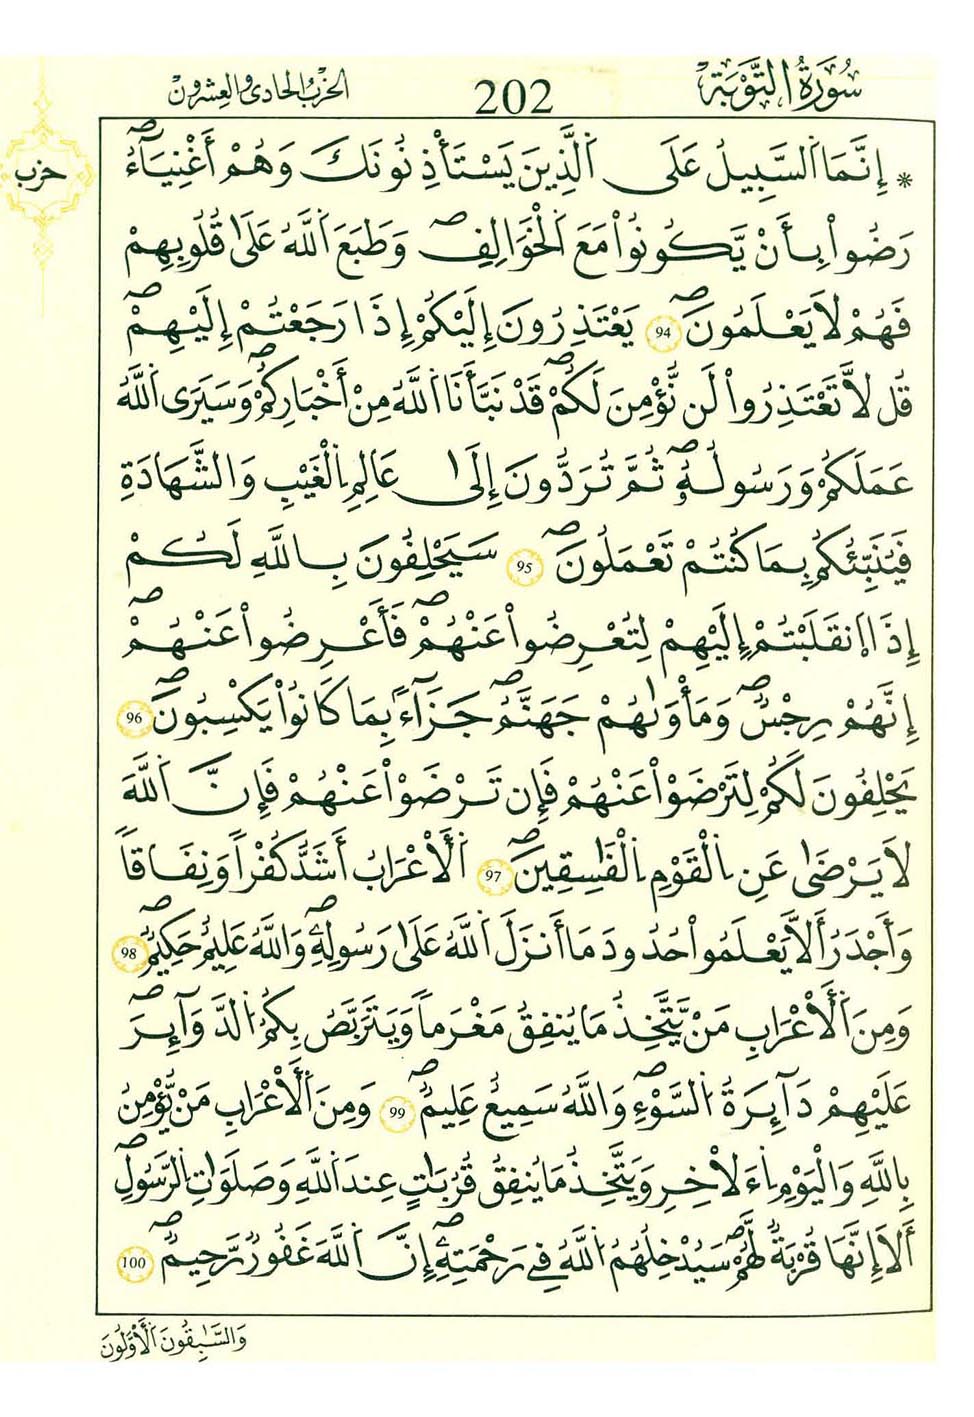 سُورَةُ التَّوْبَةِ
202
الحزب الحادي والعشرون
حزب
* إِنَّمَا اَ۬لسَّبِيلُ عَلَى اَ۬لذِينَ يَسْتَأْذِنُونَكَ وَهُمْ أَغْنِيَآءُۖ
رَضُواْ بِأَنْ يَّكُونُواْ مَعَ اَ۬لْخَوَالِفِۖ وَطَبَعَ اَ۬للَّهُ عَلَىٰ قُلُوبِهِمْ
فَهُمْ لَا يَعْلَمُونَۖ 94 يَعْتَذِرُونَ إِلَيْكُمْ إِذَا رَجَعْتُمْ إِلَيْهِمْۖ
قُل لَّا تَعْتَذِرُواْ لَن نُّؤْمِنَ لَكُمْۖ قَدْ نَبَّأَنَا اَ۬للَّهُ مِنْ أَخْبَارِكُمْۖ وَسَيَرَى اَ۬للَّهُ
عَمَلَكُمْ وَرَسُولُهُۥۖ ثُمَّ تُرَدُّونَ إِلَىٰ عَالِمِ اِ۬لْغَيْبِ وَالشَّهَادَةِ
فَيُنَبِّئُكُم بِمَا كُنتُمْ تَعْمَلُونَۖ 95 سَيَحْلِفُونَ بِاللَّهِ لَكُمْ
إِذَا اَ۪نقَلَبْتُمْ إِلَيْهِمْ لِتُعْرِضُواْ عَنْهُمْۖ فَأَعْرِضُواْ عَنْهُمْۖ
إِنَّهُمْ رِجْسٌۖ وَمَأْوَىٰهُمْ جَهَنَّمُۖ جَزَآءَۢ بِمَا كَانُواْ يَكْسِبُونَۖ 96
يَحْلِفُونَ لَكُمْ لِتَرْضَوْاْ عَنْهُمْ فَإِن تَرْضَوْاْ عَنْهُمْ فَإِنَّ اَ۬للَّهَ
لَا يَرْضَىٰ عَنِ اِ۬لْقَوْمِ اِ۬لْفَٰسِقِينَۖ 97 اَ۬لْأَعْرَابُ أَشَدُّ كُفْراً وَنِفَاقاً
وَأَجْدَرُ أَلَّا يَعْلَمُواْ حُدُودَ مَا أَنزَلَ اَ۬للَّهُ عَلَىٰ رَسُولِهِۦۖ وَاللَّهُ عَلِيمٌ حَكِيمٌۖ 98
وَمِنَ اَ۬لْأَعْرَابِ مَنْ يَّتَّخِذُ مَا يُنفِقُ مَغْرَماً وَيَتَرَبَّصُ بِكُمُ اُ۬لدَّوَآئِرَۖ
عَلَيْهِمْ دَآئِرَةُ اُ۬لسَّوْءِۖ وَاللَّهُ سَمِيعٌ عَلِيمٌۖ 99 وَمِنَ اَ۬لْأَعْرَابِ مَنْ يُّؤْمِنُ
بِاللَّهِ وَالْيَوْمِ اِ۬ءَلَاْخِرِ وَيَتَّخِذُ مَا يُنفِقُ قُرُبَٰتٍ عِندَ اَ۬للَّهِ وَصَلَوَٰتِ اِ۬لرَّسُولِۖ
أَلَا إِنَّهَا قُرْبَةٌ لَّهُمْۖ سَيُدْخِلُهُمُ اُ۬للَّهُ فِي رَحْمَتِهِۦۖ إِنَّ اَ۬للَّهَ غَفُورٌ رَّحِيمٌۖ 100
وَالسَّٰبِقُونَ اَ۬لْأَوَّلُونَ